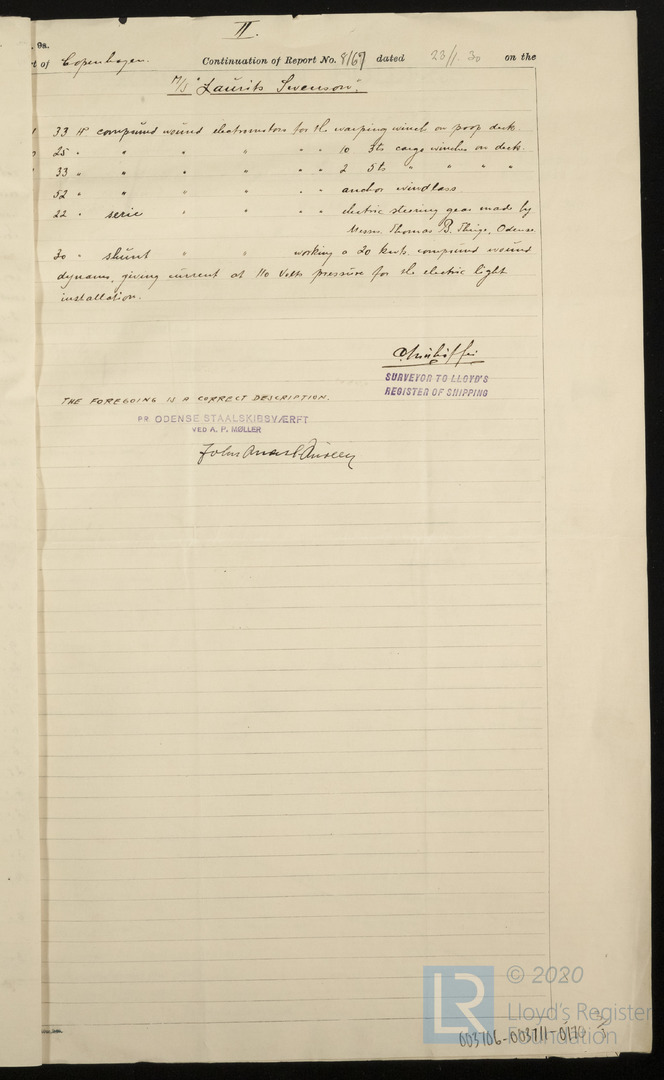 II.
. 9a.
rt of Copenhagen. Continuation of Report No. 8169 dated 23/1. 30 on the
M/S "Laurits Swenson".
33 H compound wound electromotors for the warping winch on poop deck.
25 " " " " " " 10 3ts cargo winches on deck.
33 " " " " " " 2 5ts " " " "
52 " " " " " " anchor windlass
22 " serie " " " " electric steering gear made by
Messrs. Thomas B. Thrige, Odense.
30 " shunt " " working a 20 kwts. compound wound
dynamo, giving current at 110 Volts pressure for the electric light
installation.
SURVEYOR TO LLOYD'S
REGISTER OF SHIPPING
THE FOREGOING IS A CORRECT DESCRIPTION.
PR. ODENSE STAALSKIBSVÆRFT
VED A. P. MØLLER
LR © 2020
Lloyd's Register
Foundation
003706-003711-0110 3/3